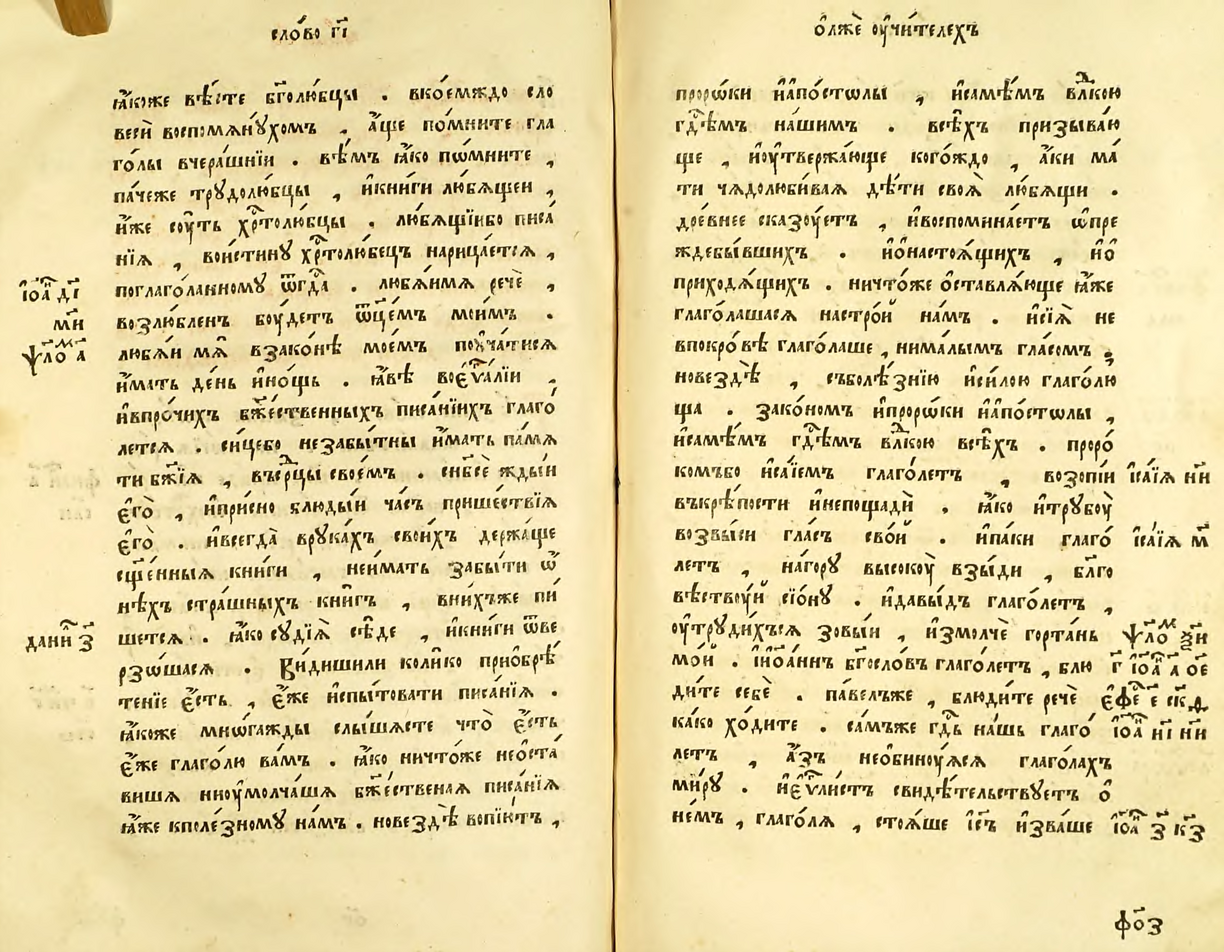 сло́во г҃і
ꙗ҆́коже вѣ́сте бг҃олю́бцы . вко́емждо сло
весѝ воспомѧнꙋ́хомъ , а҆́ще по́мните гла
го́лы вчера́шнїи . вѣ́мъ ꙗ҆́ко пѡ́мните ,
па́чеже трꙋдолю́бцы , и҆кни́ги лю́бѧщеи ,
и҆́же сꙋ́ть хрⷭ҇толю́бцы . лю́бѧщїибо писа́
нїѧ , вои́стинꙋ хрⷭ҇толю́бецъ нарица́етсѧ ,
поглаго́ланномꙋ ѿгдⷭ҇а . любѧ́имѧ речѐ ,
і҆оⷩ҇а д҃і
возлю́бленъ бꙋ́детъ ѿц҃е́мъ мои́мъ .
м҃и
любѧ́и мѧ̀ взако́нѣ мое́мъ поꙋча́тисѧ
ѱло́ⷨ а҃
и҆́мать де́нь и҆но́щь . ꙗ҆́вѣ воеѵⷢ҇а́лїи ,
и҆впро́чихъ бж҃е́ственныхъ писа́нїихъ глаго́
летсѧ . си́цебо незабы́тны и҆́мать па́мѧ
ти бж҃їѧ , въсрⷣцы свое́мъ . си́бсѐ жды́и
є҆гѡ̀ , и҆при́сно блюды́и ча́съ прише́ствїѧ
є҆гѡ̀ . и҆всегда̀ врꙋка́хъ свои́хъ держа́ще
сщ҃е́нныѧ кни́ги , неи́мать забы́ти ѡ҆
нѣ́хъ стра́шныхъ кни́гъ , вни́хъже пи́
шетсѧ . ꙗ҆́ко сꙋдїѧ̀ сѣ́де , и҆кни́ги ѿве
дани́ⷧ з҃
рзо́шасѧ . Ви́дишили коли́ко приѻбрѣ́
те́нїе є҆́сть , є҆́же и҆спы́товати писа́нїѧ .
ꙗ҆́коже мно́гажды слы́шасте что̀ є҆́сть
є҆́же глаго́лю ва́мъ . ꙗ҆́ко ничто́же неѡ҆ста́
вишѧ ниоу҆молча́шѧ бж҃е́ственаѧ писа́нїѧ
ꙗ҆́же кполе́зномꙋ на́мъ . новездѣ̀ вопїю́тъ ,
ѻ҆лжѐ оу҆чи́телехъ
проро́ки и҆а҆по́столы , и҆самѣ́мъ влⷣкою
гдⷭ҇емъ на́шимъ . всѣ́хъ призыва́ю
ще , и҆оу҆твержа́юще кого́ждо , а҆́ки ма́
ти чѧдолюби́ваѧ дѣ́ти своѧ̀ лю́бѧщи .
дре́внее сказꙋ́етъ , и҆воспомина́етъ ѡ҆пре
ждебы́вшихъ . и҆ѻ҆настоѧ́щихъ , и҆ѻ҆
приходѧ́щихъ . ничто́же ѻ҆ставлѧ́юще ꙗ҆́же
глаго́лашасѧ настро́й на́мъ . и҆сїѧ̀ не
впокро́вѣ глаго́лаше , нима́лымъ гла́сомъ ,
новездѣ̀ , съболѣ́знїю и҆си́лою глаго́лю
ща . зако́номъ и҆проро́ки и҆а҆по́столы ,
и҆самѣ́мъ гдⷭ҇емъ влⷣкою всѣ́хъ . проро́
комъбо и҆са́їемъ глаго́летъ , возопі́и
і҆са́їѧ н҃и
въкрѣ́пости и҆непощадѝ . ꙗ҆́ко и҆трꙋбꙋ̀
возвы́си гла́съ сво́й . и҆па́ки глаго́
і҆са́їѧ м҃
летъ , на́горꙋ высокꙋ̀ взы́ди , бл҃го
вѣствꙋ́й сїо́нꙋ . и҆давы́дъ глаго́летъ ,
оу҆трꙋди́хъсѧ зовы́и , и҆змолчѐ горта́нь
ѱло́ⷨ ѯ҃и
мо́й . і҆ѡа́ннъ бг҃осло́въ глаго́летъ , блю
г҃ і҆оⷩ҇а а҃ ѻ҃е
ди́те себѐ . па́велъже , блюди́те речѐ
є҆фе҇ е҃ ск҃ѳ
ка́ко хо́дите . са́мъже гдⷭ҇ь на́шь глаго́
і҆оⷩ҇а и҃і н҃и
летъ , а҆́зъ необинꙋ́ѧсѧ глаго́лахъ
ми́рꙋ . и҆еѵⷢ҇ли́стъ свидѣ́тельствꙋетъ ѻ҆
не́мъ , глаго́лѧ , стоѧ́ше і҆с҃ъ и҆зва́ше
і҆оⷩ҇а з҃ к҃з
фо҃з